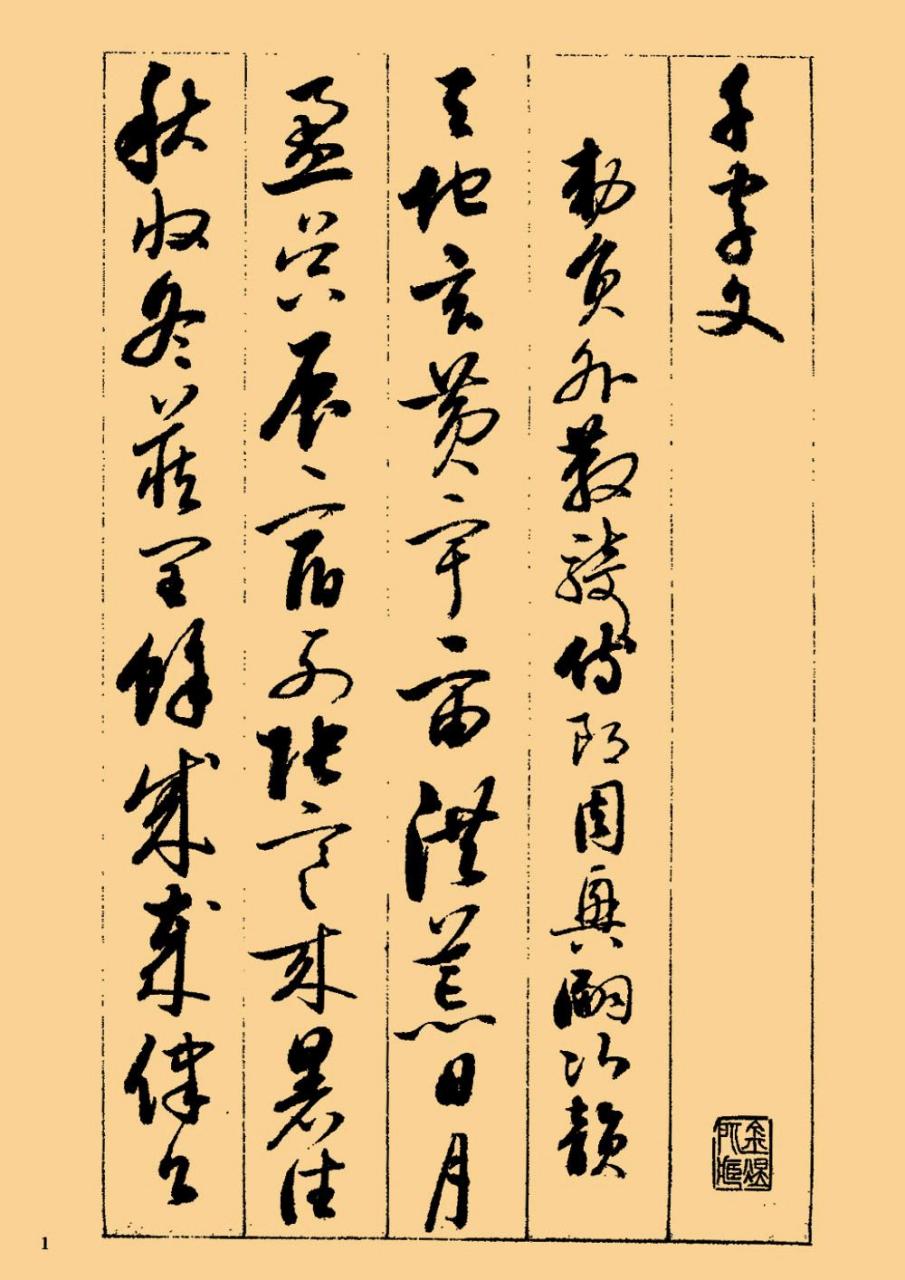 千字文
敕員外散騎侍郎周興嗣次韻
天地玄黃宇宙洪荒日月
盈昃辰宿列張寒來暑往
秋收冬藏閏餘成歲律召
1